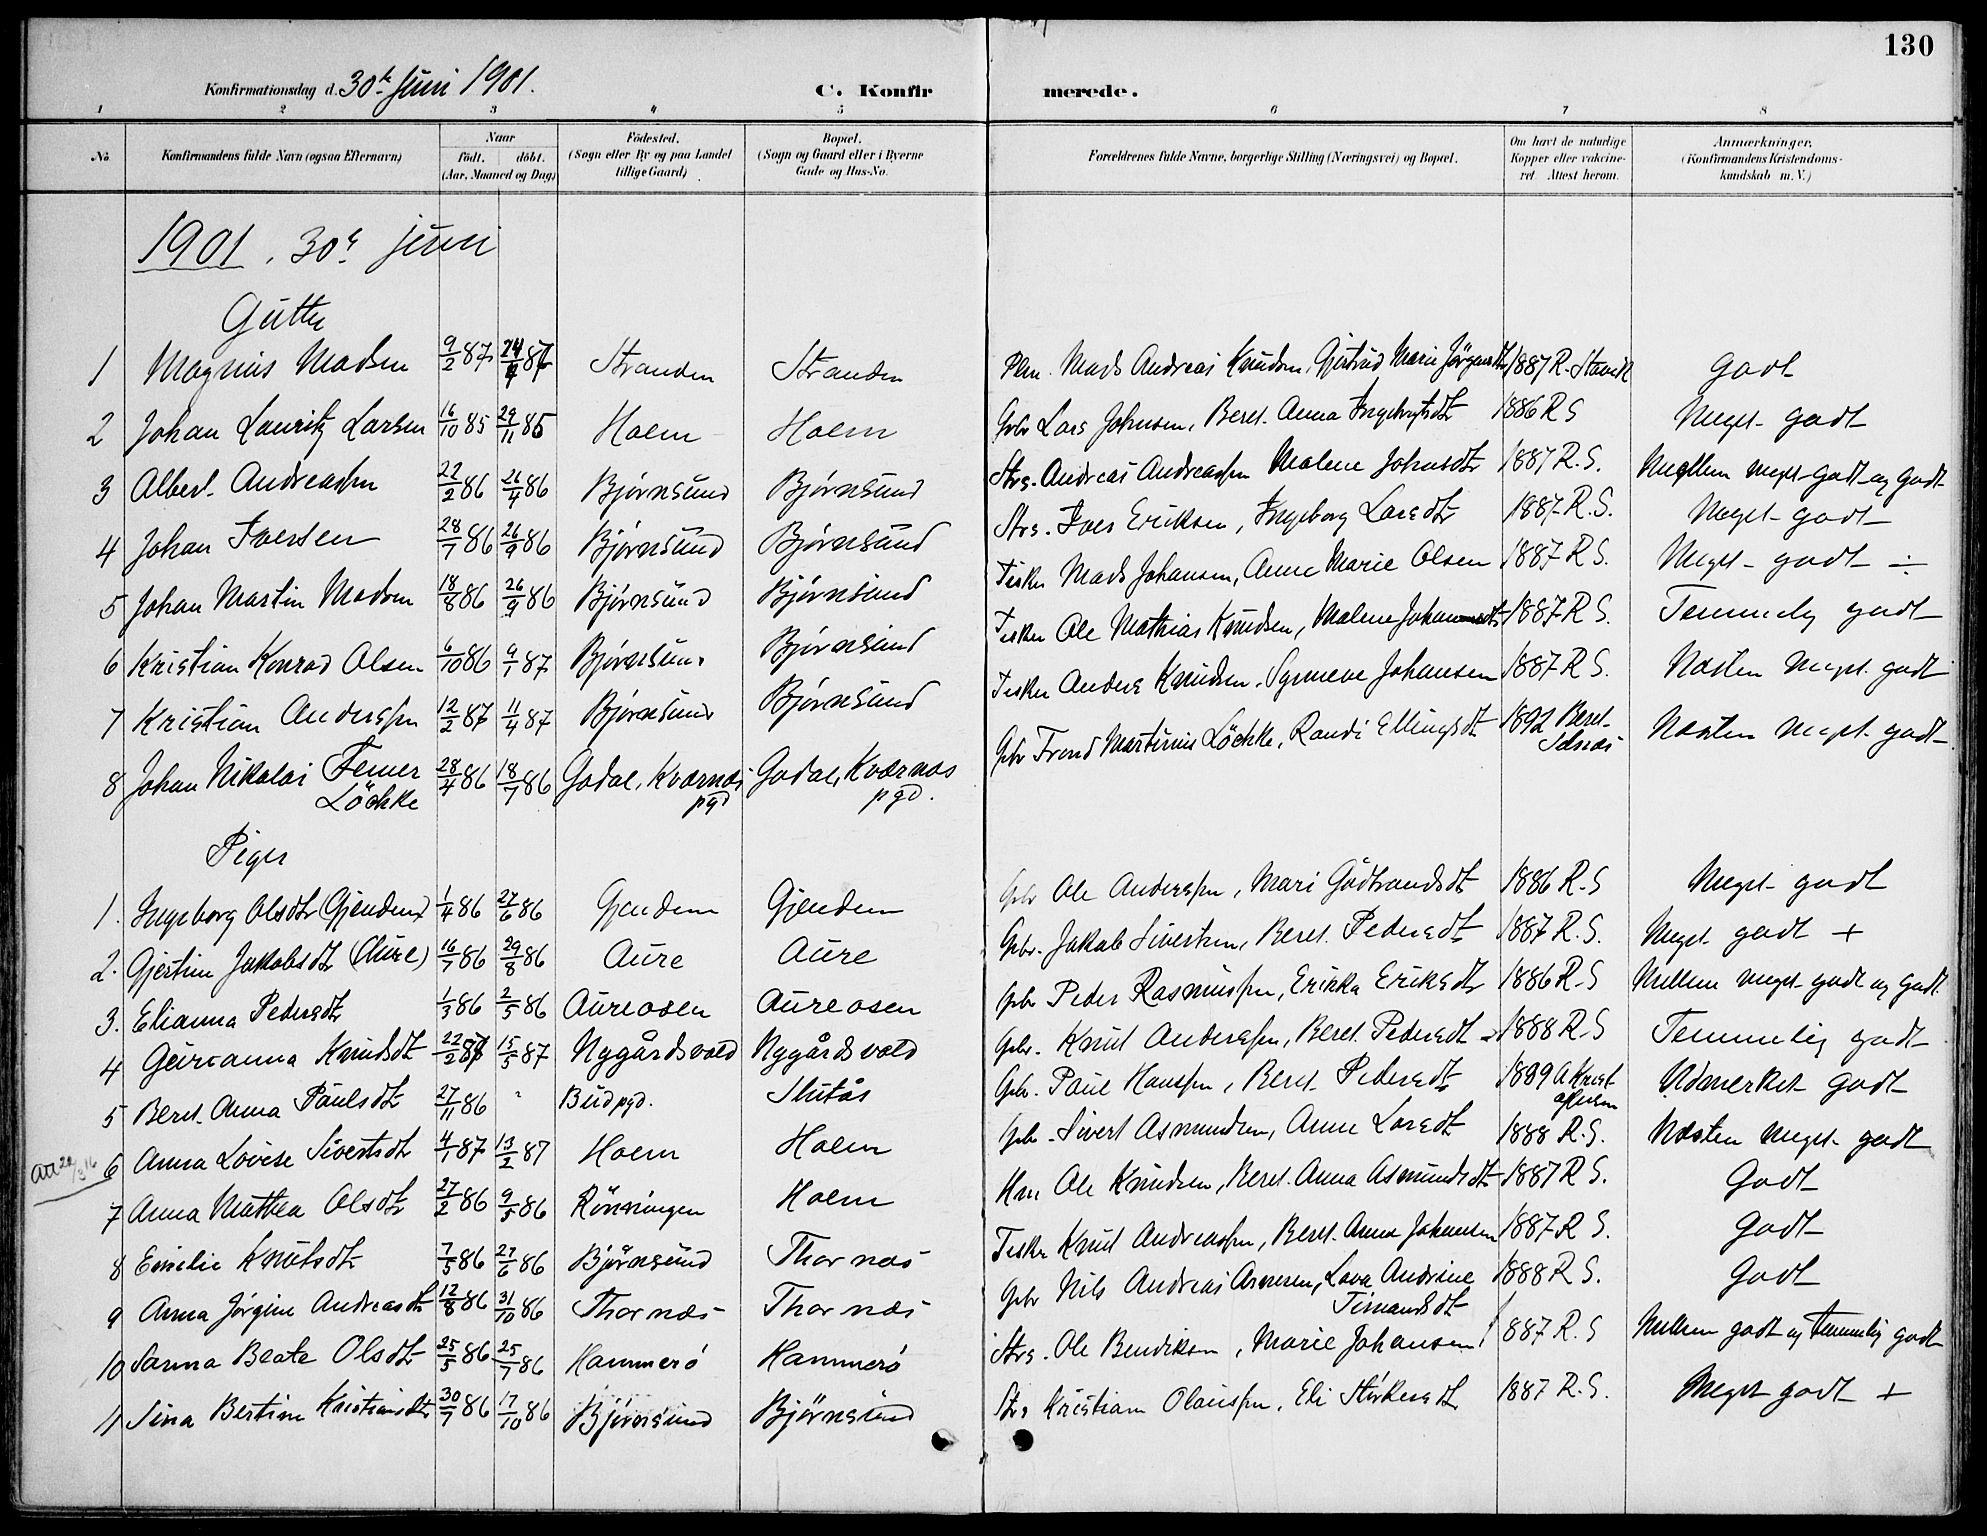 130
Konfirmationsdag d. 30te Juni 1901.
C. Konfirmerede.
1 2 3 4 5 6 7 8
No
Konfirmandens fulde Navn (ogsaa Efternavn)
Naar født. døbt. (Aar, Maaned og Dag)
Fødested. (Sogn eller By og paa Landet tillige Gaard)
Bopæl. (Sogn og Gaard eller i Byerne Gade og Hus-No.
Forældrenes fulde Navne, borgerlige Stilling (Næringsvei) og Bopæl.
Om havt de naturlige Kopper eller vaccineret. Attest herom.
Anmærkninger. (Konfirmandens Kristendomskundskab m. V.)
1901. 30te Juni
Gutter
1 Magnus Madsen 9/2 87 24/4 87 Stranden Stranden Mads Andreas Knudsen, Gjertrud Marie Jørgensdtr 1887 R. Godt
2 Johan Lauritz Larsen 16/10 85 29/11 85 Holm Holm Gbr Lars Johnsen, Beret Anna Ingebrigtsdtr 1886 R S Meget godt
3 Albert Andreassen 22/2 86 26/4 86 Bjørnsund Bjørnsund Strs. Andreas Andreassen Malene Johnsdtr 1887 R. S. Mellem meget godt og godt
4 Johan Iversen 28/7 86 26/9 86 Bjørnsund Bjørnsund Strs. Iver Eriksen, Ingeborg Larsdtr 1887 R. S. Meget godt
5 Johan Martin Madsen 18/8 86 26/9 86 Bjørnsund Bjørnsund Fisker Mads Johansen, Anne Marie Olsen 1887 R S. Meget godt ÷
6 Kristian Konrad Olsen 6/10 86 9/1 87 Bjørnsund Bjørnsund Fisker Ole Mathias Knudsen, Malene Johannesdtr 1887 R S. Temmelig godt
7 Kristian Anderssen 12/2 87 11/4 87 Bjørnsund Bjørnsund Fisker Anders Knudsen, Synneve Johansen 1887 R S. Næsten meget godt
8 Johan Nikolai Femer Löchke 28/4 86 18/7 86 Gadal, Kværnæs pgd Gadal, Kværnæs pgd. Gbr Trond Martinus Löchke, Randi Ellingsdtr 1892 Beret Næsten meget godt
Piger
1. Ingeborg Olsdtr (Gjendem) 1/4 86 27/6 86 Gjendem Gjendem Gbr Ole Anderssen, Mari Gudbrandsdtr 1886 R. S Meget godt
2. Gjertine Jakobsdtr (Aure) 16/7 86 29/8 86 Aure Aure Gbr. Jakob Sivertsen, Beret Pedersdtr 1887 R. S. Meget godt +
3. Elianna Pedersdtr 1/3 86 2/5 86 Aureosen Aureosen Gbr Peder Rasmussen, Erikka Eriksdtr 1886 R. S Mellem meget godt og godt
4 Gurianna Knudsdtr 22/2 87 15/5 87 Nygårdsvold Nygårdsvold Gbr. Knut Anderssen, Beret Pedersdtr 1888 R. S Temmelig godt
5 Beret Anna Paulsdtr 27/11 86 " Bud pgd. Slutås Gbr. Paul Hanssen, Beret Pedersdtr 1889 Udmerket godt
att 20/3 16
6 Anna Lovise Sivertsdtr 4/1 87 13/2 87 Holm Holm Gbr. Sivert Asmundsen, Anne Larsdtr 1888 R. S. Næsten meget godt
7 Anna Mathea Olsdtr 27/2 86 9/5 86 Rönningen Holm Hm Ole Knudsen, Beret Anna Asmundsdtr 1887 R S. Godt
8 Emilie Knutsdtr 7/5 86 27/6 86 Björnsund Thornæs Fisker Knut Andreassen, Beret Anna Johansen 1887 R S. Godt
9 Anna Jörgine Andreasdtr 12/8 86 31/10 86 Thornæs Thornæs Gbr Nils Andreas Arnesen, Lava Andrine 1888 R S. Godt
10 Sanna Beate Olsdtr 25/5 86 25/7 86 Hammerö Hammerö Strs. Ole Bendiksen, Marie Johansen 1887 R. S Mellem godt og temmelig godt
11 Sina Bertine Kristiansdtr 30/7 86 17/10 86 Bjørnsund Björnsund Strs Kristian Olaussen, Eli Størkersdtr 1887 R. S. Meget godt +